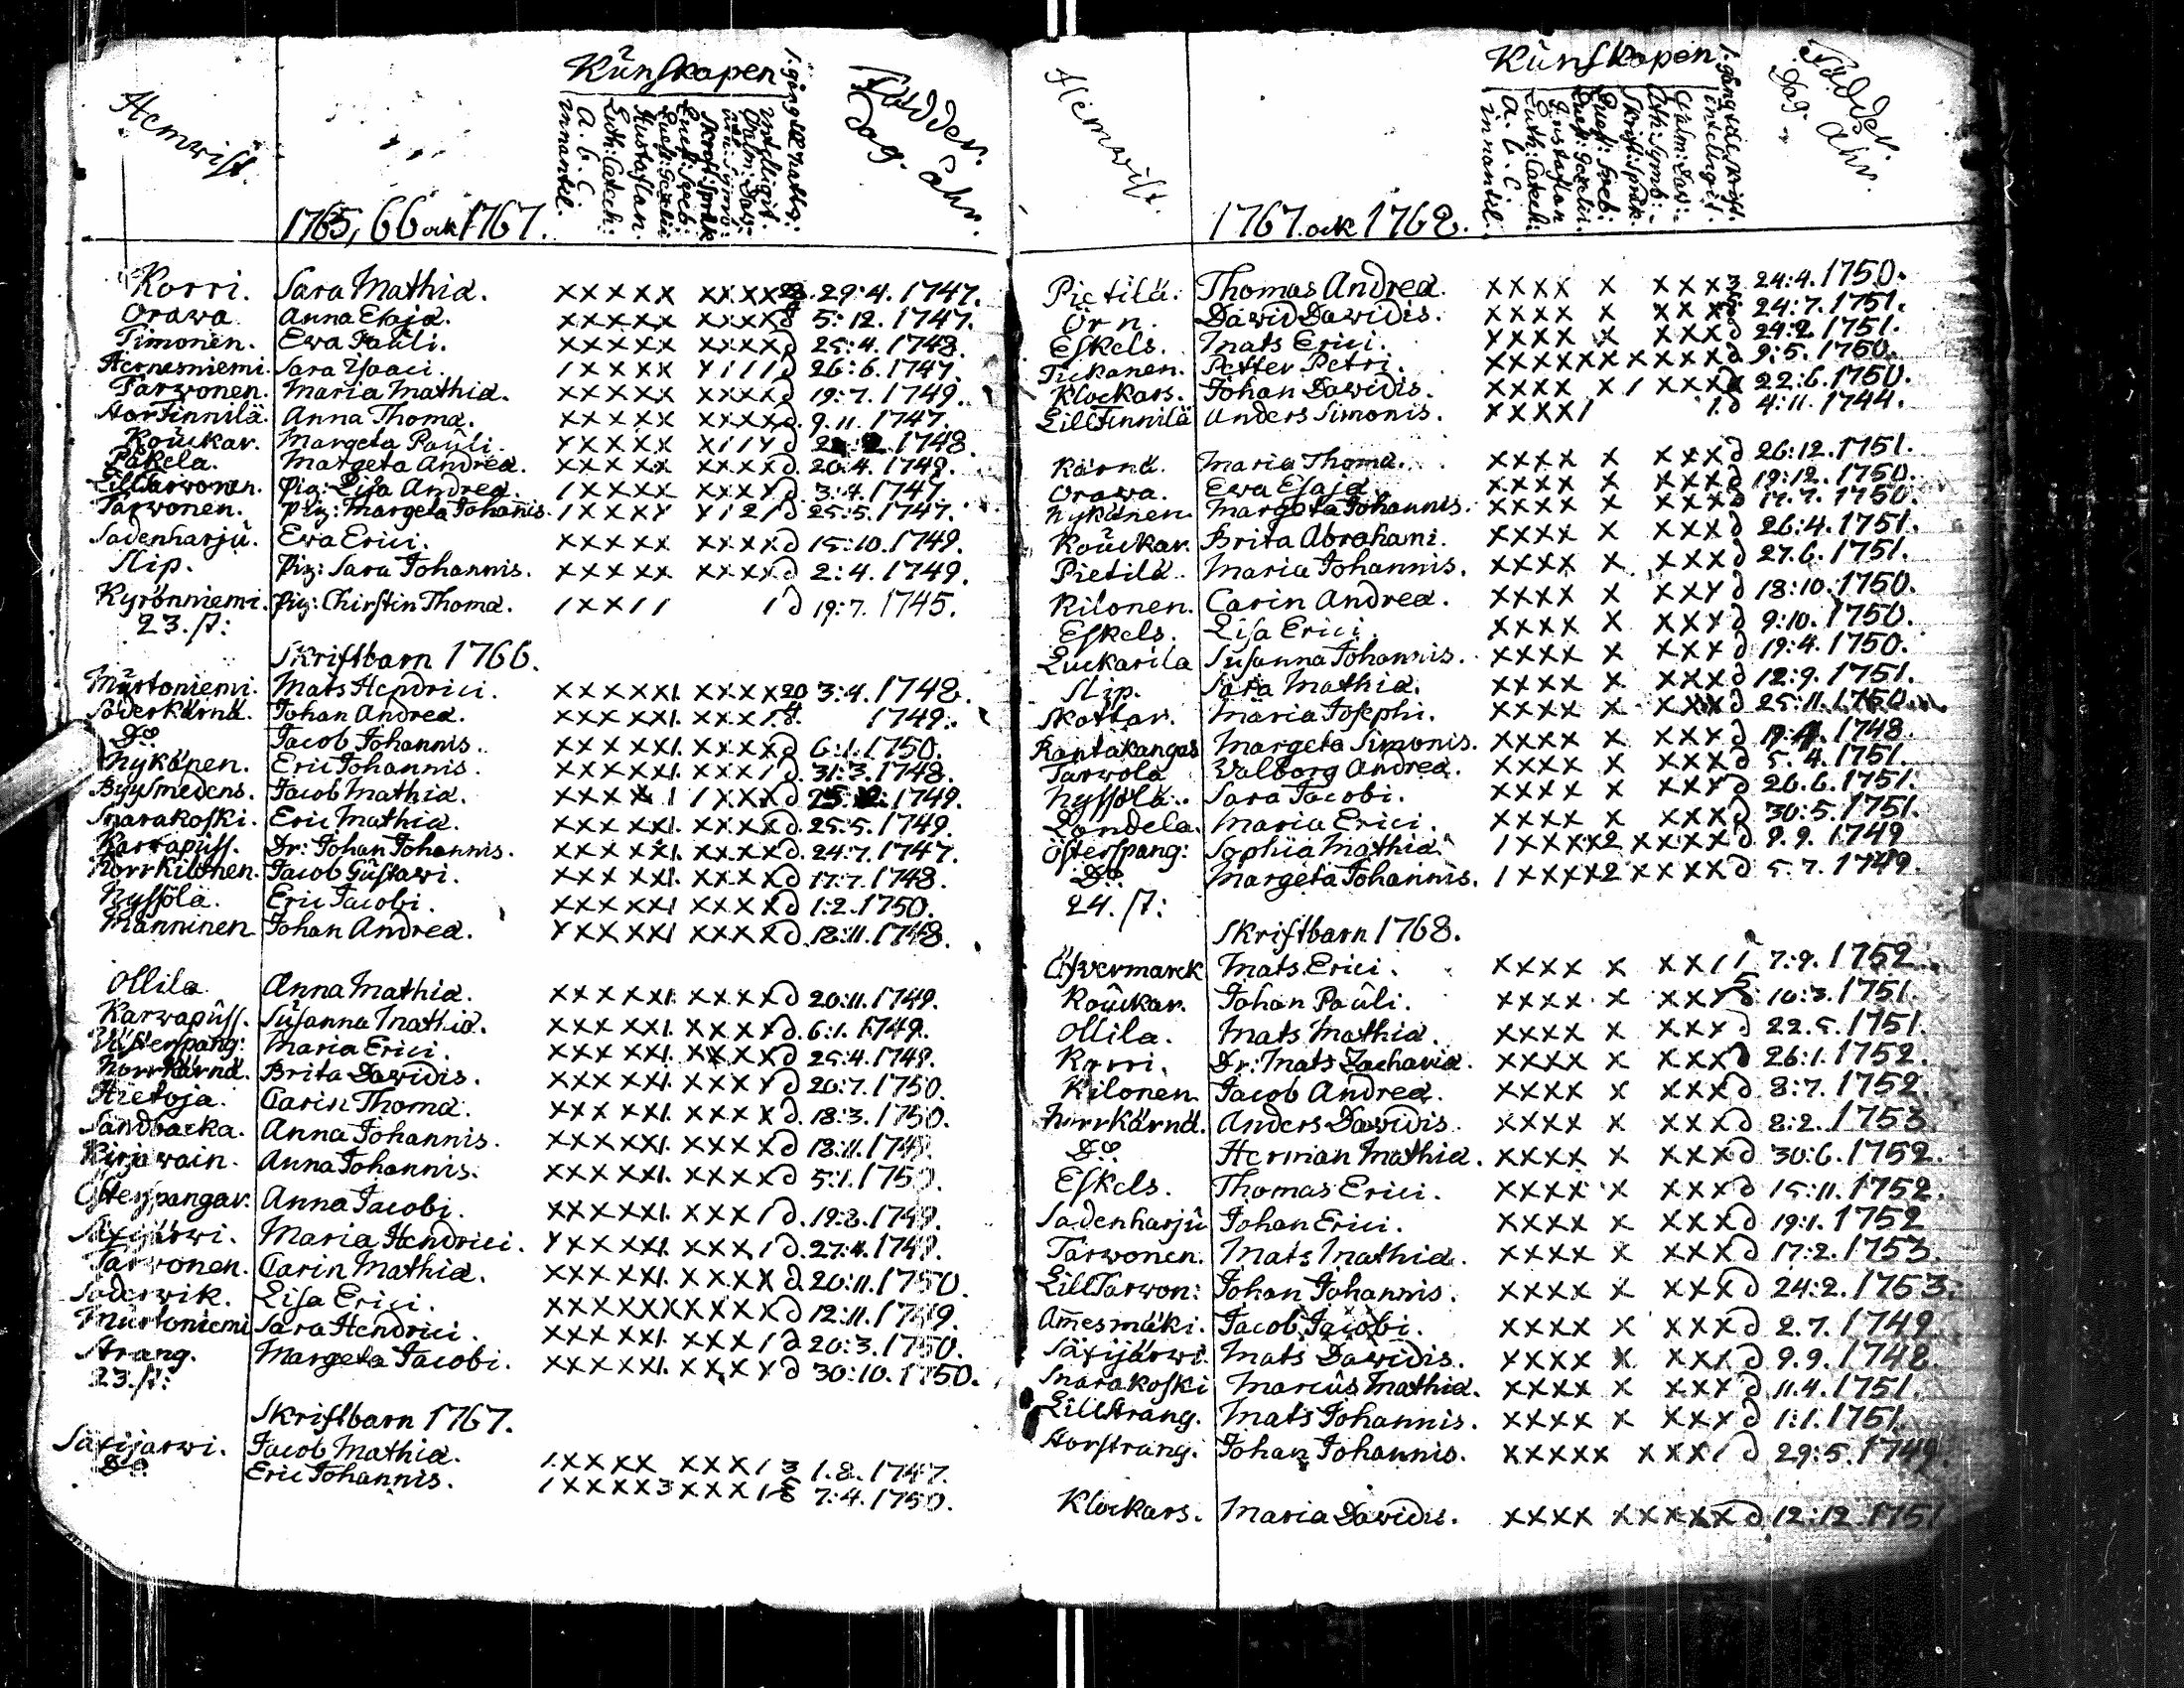 Hemwist.
Kunskapen
1. gång til Nattv.
Födder.
Dag. Åhr.
1765, 66 ock 1767.
innantil.
A. b. C.
Luth: Catech:
Gustaflan.
Korri. Sara Mathiæ. x x x x x x x x x 29:4. 1747.
Orawa. Anna Esajæ. x x x x x x x x x d 5:12. 1747.
Timonen. Ewa Pauli. x x x x x x x x x d 25:4. 1748.
Hernesniemi. Sara Isaaci. 1 x x x x x 1 1 1 d 26:6. 1747.
Tarwonen. Maria Mathiæ. x x x x x x x x x d 19:7. 1749.
StorFinnilä. Anna Thomæ. x x x x x x x x x d. 9.11. 1747.
Kouckar. Margeta Pauli. x x x x x x 1 1 x d 1748.
Päkela. Margeta Andreæ. x x x x x x x x x d. 20:4. 1749.
LillTarwonen. Pig: Lisa Andreæ. 1 x x x x x x x x d. 3:4. 1747.
Tarwonen. Pig: Margeta Johannis. 1 x x x x x 1 2 1 d 25:5. 1747.
Sadenharju. Ewa Erici. x x x x x x x x x d 15:10. 1749.
Slip. Pig: Sara Johannis. x x x x x x x x x d 2:4. 1749.
Kyrönniemi. Pig: Chirstin Thomæ. 1 x x 1 1 1 d 19:7. 1745.
23. st:
Skriftbarn 1766.
Murtoniemi. Mats Hendrici. x x x x x 1. x x x x 20 3:4. 1748.
Söderkärnä. Johan Andreæ. x x x x x 1. x x x 1. 1749.
Do. Jacob Johannis. x x x x x 1. x x x x d 6:1. 1750.
Nykänen. Eric Johannis. x x x x x 1. x x x 1 d. 31:3. 1748.
BySmedens. Jacob Mathiæ. x x x x x 1 1 x x x d 1749.
Snarakoski. Eric Mathiæ. x x x x x 1. x x x x d. 25:5. 1749.
Karwapuss. Dr: Johan Johannis. x x x x x 1. x x x x d. 24:7. 1747.
NorrKilonen. Jacob Gustawi. x x x x x 1. x x x x d 17:7. 1748.
Nyssölä. Eric Jacobi. x x x x x 1 x x x x d 1:2. 1750.
Manninen Johan Andreæ. x x x x x 1 x x x x d. 18:11. 1748.
Ollila. Anna Mathiæ. x x x x x 1. x x x x d 20:11. 1749.
Karwapuss. Susanna Mathiæ. x x x x x 1. x x x x d. 6:1. 1749.
Westerspang: Maria Erici. x x x x x 1. x x x x d 25:4. 1749.
Norrkärnä. Brita Dawidis. x x x x x 1. x x x x d 20:7. 1750.
Hietoja. Carin Thomæ. x x x x x 1. x x x x d. 18:3. 1750.
Sandbacka. Anna Johannis. x x x x x 1. x x x x d 18:11. 1749.
Kirjawain. Anna Johannis. x x x x x 1. x x x x d 5:1. 1750.
Österspangar. Anna Jacobi. x x x x x 1. x x x 1 d. 19:8. 1749.
Säxijärwi. Maria Hendrici. x x x x x 1. x x x 1 d. 27:4. 1749.
Tarwonen. Carin Mathiæ. x x x x x 1. x x x x d. 20:11. 1750.
Söderwik. Lisa Erici. x x x x x x x x x x d 12:11. 1749.
Murtoniemi Sara Hendrici. x x x x x 1. x x x 1 d 20:3. 1750.
Strang. Margeta Jacobi. x x x x x 1. x x x x d 30:10. 1750.
23. st:
Skriftbarn 1767.
Säxijarwi. Jacob Mathiæ. 1 x x x x x x x 1 3 1.8. 1747.
Do. Eric Johannis. 1 x x x x 3 x x x 1 7:4. 1750.
Hemwist.
Kunskapen
1. gång til Skrift.
Födder.
Dag. Åhr.
1767. ock 1768.
innantil.
A. b. C.
Luth: Catech:
Gustaflan
Pietilä. Thomas Andreæ. x x x x x x x x 3 24:4. 1750.
Örn. Dawid Dawidis. x x x x x x x x 24:7. 1751.
Eskels. Mats Erici. x x x x x x x x d 24:2 1751.
Tickanen. Petter Petri. x x x x x x x x x x d 9:5. 1750.
Klockars. Johan Dawidis. x x x x x 1 x x x d 22:6. 1750.
LillFinnilä Anders Simonis. x x x x 1 1. d 4:11. 1744.
Kärnä. Maria Thomæ. x x x x x x x x d 26:12. 1751.
Orawa. Ewa Esajæ. x x x x x x x x d 19:12. 1750.
Nykänen. Margeta Johannis. x x x x x x x x d 17.7. 1750.
Kouckar. Brita Abrahami. x x x x x x x x d 26:4. 1751.
Pietilä. Maria Johannis. x x x x x x x x d 27.6. 1751.
Kilonen. Carin Andreæ. x x x x x x x x d 18:10. 1750.
Eskels. Lisa Erici. x x x x x x x x d 9:10. 1750.
Luckarila Susanna Johannis. x x x x x x x x d 19:4. 1750.
Slip. Sara Mathiæ. x x x x x x x x d 12:9. 1751.
Skottar. Maria Josephi. x x x x x x x x d 25:11. 1750.
Rantakangas Margeta Simonis. x x x x x x x x d 1748.
Tarwola Walborg Andreæ. x x x x x x x x d 5.4. 1751.
Nyssölä. Sara Jacobi. x x x x x x x x d 26.6. 1751.
Londela. Maria Erici. x x x x x x x x d 30:5. 1751.
Österspang: Sophia Mathiæ. 1 x x x x 2 x x x x d 9.9. 1749
Do. Margeta Johannis. 1 x x x x 2 x x x x d 5.7. 1749.
24. st:
Skriftbarn 1768.
Öfvermarck Mats Erici. x x x x x x x 1 1 7:9. 1752
Kouckar. Johan Pauli. x x x x x x x x 10:3. 1751.
Ollila. Mats Mathiæ. x x x x x x x x d 22.5. 1751.
Korri. Dr: Mats Zachariæ. x x x x x x x x d 26:1. 1752.
Kilonen. Jacob Andreæ. x x x x x x x x d 8:7. 1752.
Norrkärnä. Anders Dawidis. x x x x x x x x d 8:2. 1753
Do. Herman Mathiæ. x x x x x x x x d 30:6. 1752.
Eskels. Thomas Erici. x x x x x x x x d 15:11. 1752.
Sadenharju Johan Erici. x x x x x x x x d 19:1. 1752
Tarwonen. Mats Mathiæ. x x x x x x x x d 17:2. 1753.
LillTarwon: Johan Johannis. x x x x x x x x d 24:2. 1753.
Am̄esmäki. Jacob Jacobi. x x x x x x x x d 2.7. 1749
Säxijärwi. Mats Dawidis. x x x x x x x 1 d 9.9. 1748
Snarakoski Marcus Mathiæ. x x x x x x x x d 11.4. 1751.
LillStrang. Mats Johannis. x x x x x x x x d 1:1. 1751.
Storstrang. Johan Johannis. x x x x x x x x 1 d 29:5. 1749.
Klockars. Maria Dawidis. x x x x x x x x x d 12:12. 1751